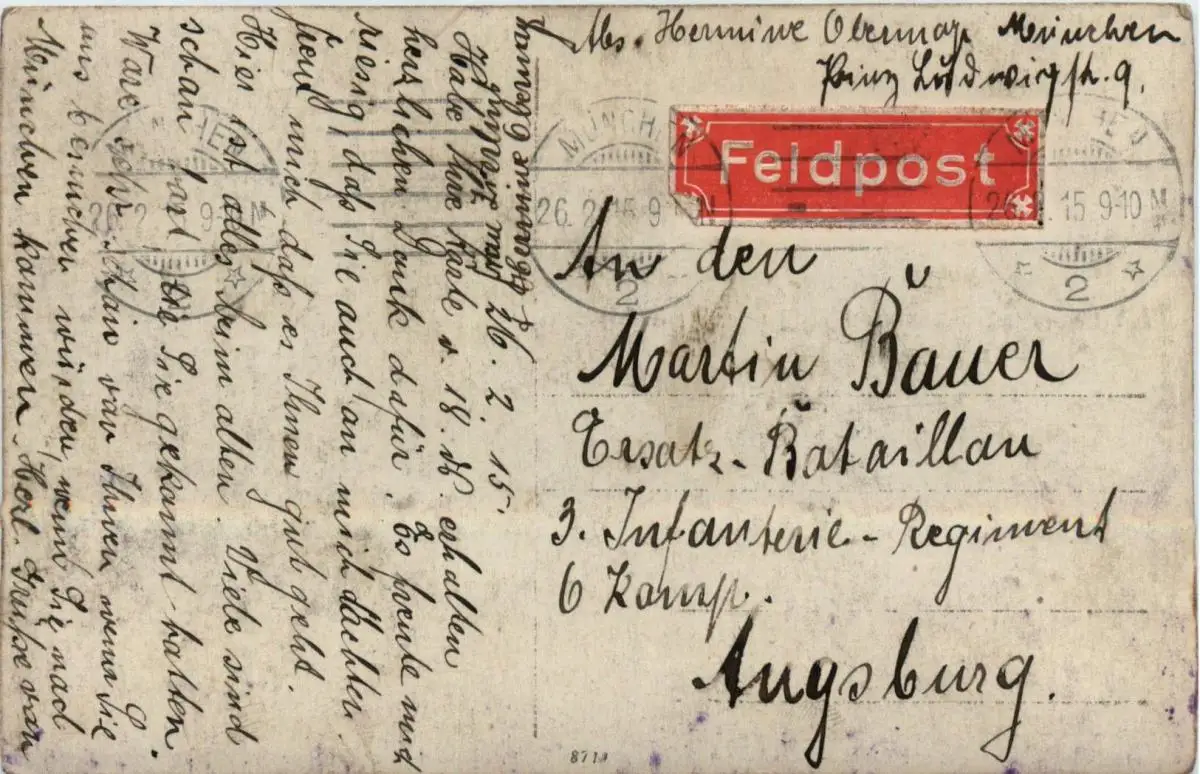 Abs. Hermine Obermay München
Prinz Ludwigstr. 9.
Feldpost
MÜNCHEN
26. 2. 15 9-10 N
2
An den
Martin Bauer
Ersatz-Bataillon
3. Infanterie-Regiment
6 Komp.
Augsburg.
26. 2. 15.
Habe Ihre Karte v. 18. ds. erhalten
herzlichen Dank dafür. Es freute mich
riesig, daß Sie auch an mich dachten.
freut mich daß es Ihnen gut geht.
Hier ist alles beim alten. Viele sind
schon fort die Sie gekannt hatten.
Wäre sehr von Ihnen wenn Sie
uns besuchen würden, wenn Sie nach
München kommen. Herl. Grüße von
8719